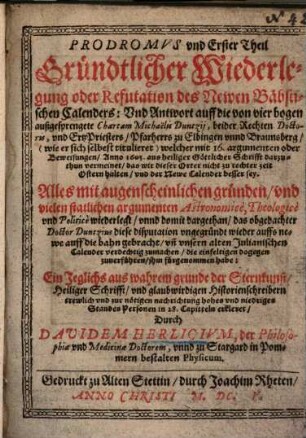 N 42
PRODROMVS vnd Erster Theil
Gründtlicher Wiederle-
gung oder Refutation des Newen Bäbsti-
schen Calenders: Vnd Antwort auff die von vier bogen
außgesprengete Chartam Michaëlis Duntzij, beider Rechten Docto-
ris, vnd ErtzPriesters / Pfarherrs zu Elbingen vnnd Braunsberg /
(wie er sich selbest titulieret) welcher mit 16. argumenten oder
Beweisungen / Anno 1603. aus heiliger Göttlicher Schrifft darzu-
thun vermeinet / das wir dieser Orter nicht zu rechter zeit
Ostern halten / vnd der Newe Calender besser sey.
Alles mit augenscheinlichen gründen / vnd
vielen statlichen argumenten Astronomicè, Theologicè
vnd Politicè wiederlegt / vnnd damit dargethan / das obgedachter
Doctor Duntzius diese disputation vngegründt wieder auffs ne-
we auff die bahn gebracht / vñ vnsern alten Julianischen
Calender verdechtig zumachen / die einfeltigen dagegen
zuuerführen / ihm fürgenommen habe:
Ein Jeglichs aus wahrem grunde der Sternkunst /
Heiliger Schrifft / vnd glaubwirdigen Historienschreibern
trewlich vnd zur nötigen nachrichtung hohes vnd niedriges
Standes Personen in 28. Capitteln erkleret /
Durch
DAVIDEM HERLICIVM, der Philoso-
phiæ vnd Medicinæ Doctorem, vnnd zu Stargard in Pom-
mern bestalten Physicum.
Gedruckt zu Alten Stettin / durch Joachim Rheten /
ANNO CHRISTI M. DC. V.